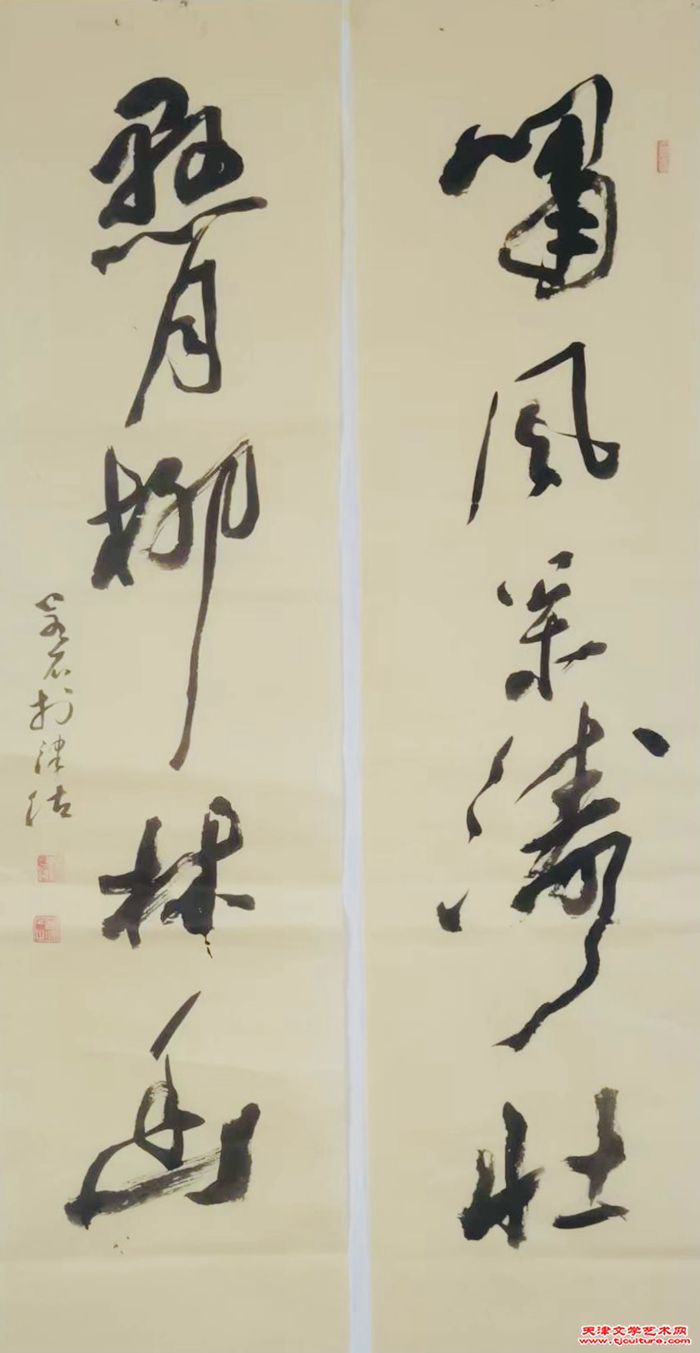 嘯風濤壯
懸月柳林幽
石於津沽
天津文学艺术网
www.tjculture.com